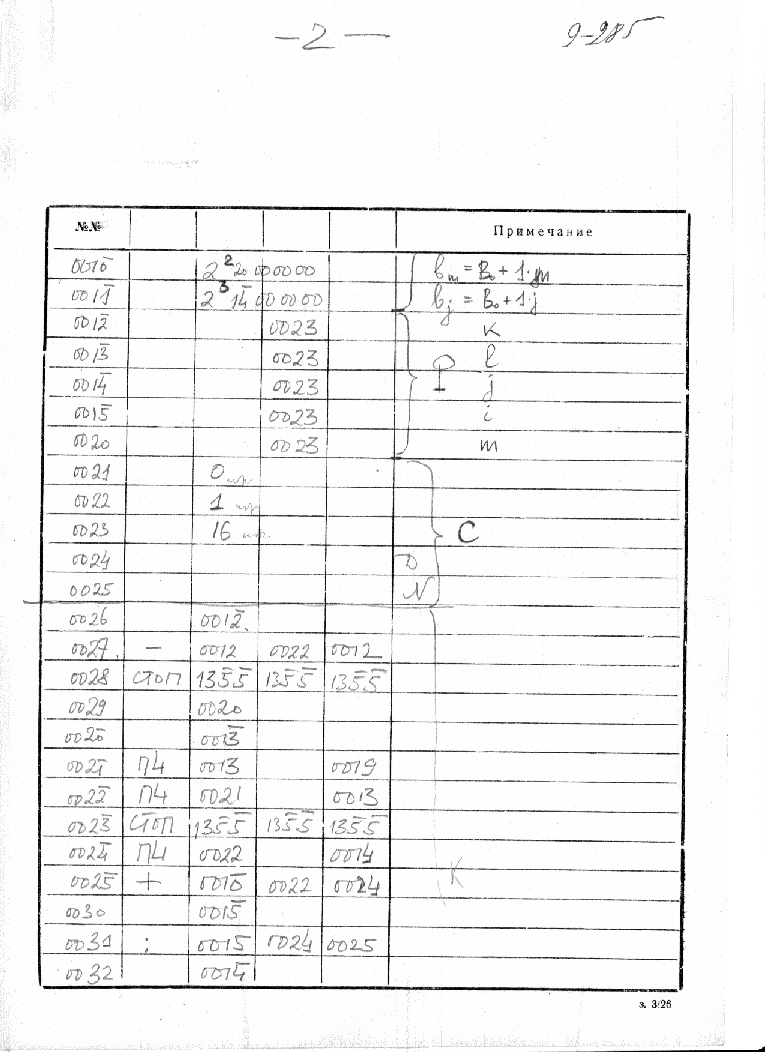 —2—
9-285
№№ Примечание
001̄0̄ 2² 20 00 00 00 bₘ = B₀ + 1·m
001̄1̄ 2³ 1̄4̄ 00 00 00 bⱼ = B₀ + 1·j
001̄2̄ 0023 K
001̄3̄ 0023 l
001̄4̄ 0023 j
001̄5̄ 0023 i
0020 0023 m
0021 0
0022 1
0023 16 C
0024 D
0025 N
0026 001̄2̄
0027 — 0012 0022 0012
0028 СТОП 135̄5̄ 135̄5̄ 135̄5̄
0029 0020
002̄0̄ 001̄3̄
002̄1̄ ПЧ 0013 0019
002̄2̄ ПЧ 0021 0013
002̄3̄ СТОП 135̄5̄ 135̄5̄ 135̄5̄
002̄4̄ ПЧ 0022 0014
002̄5̄ + 001̄0̄ 0022 0024 K
0030 001̄5̄
0031 : 0015 0024 0025
0032 001̄4̄
з. 3/26